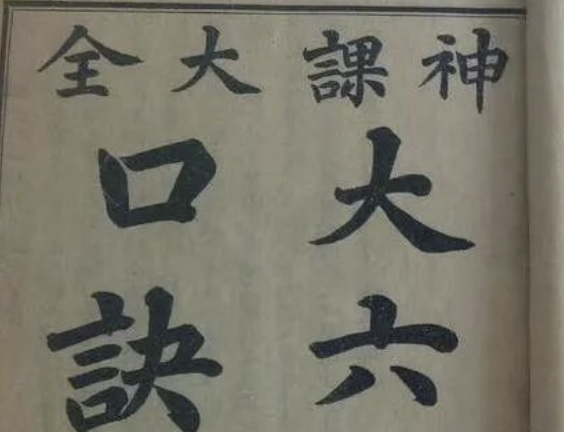 神課大全
大六
口訣